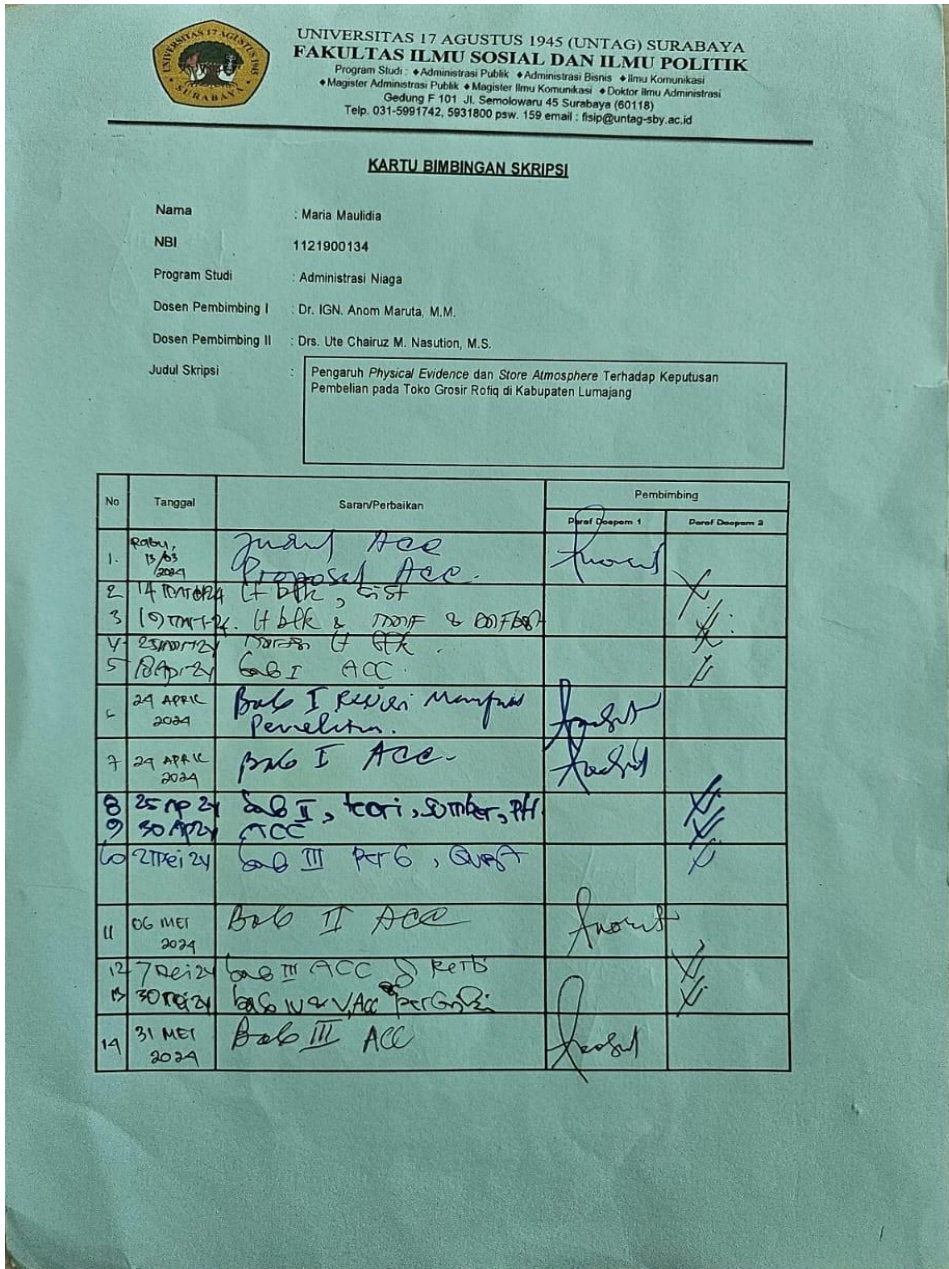 UNIVERSITAS 17 AGUSTUS 1945
SURABAYA
UNIVERSITAS 17 AGUSTUS 1945 (UNTAG) SURABAYA
FAKULTAS ILMU SOSIAL DAN ILMU POLITIK
Program Studi : ♦Administrasi Publik ♦Administrasi Bisnis ♦Ilmu Komunikasi
♦Magister Administrasi Publik ♦Magister Ilmu Komunikasi ♦Doktor Ilmu Administrasi
Gedung F 101 Jl. Semolowaru 45 Surabaya (60118)
Telp. 031-5991742, 5931800 psw. 159 email : fisip@untag-sby.ac.id
KARTU BIMBINGAN SKRIPSI
Nama : Maria Maulidia
NBI 1121900134
Program Studi : Administrasi Niaga
Dosen Pembimbing I : Dr. IGN. Anom Maruta, M.M.
Dosen Pembimbing II : Drs. Ute Chairuz M. Nasution, M.S.
Judul Skripsi : Pengaruh Physical Evidence dan Store Atmosphere Terhadap Keputusan
Pembelian pada Toko Grosir Rofiq di Kabupaten Lumajang
No Tanggal Saran/Perbaikan Pembimbing
Paraf Dospem 1 Paraf Dospem 2
1. Rabu, 13/03 /2024 Judul ACC
Proposal ACC.
2
3
4
5 Bab I ACC.
6 24 APRIL 2024 Bab I Revisi Manfaat
Penelitian.
7 29 APRIL 2024 Bab I ACC.
8 25 Ap 24 Bab II, teori, sumber,
9 30 Ap 24 ACC
10 2 Mei 24 Bab III
11 06 MEI 2024 Bab II ACC
12 7 Mei 24 Bab III ACC
13 30 Mei 24 bab IV & V, Acc
14 31 MEI 2024 Bab III ACC